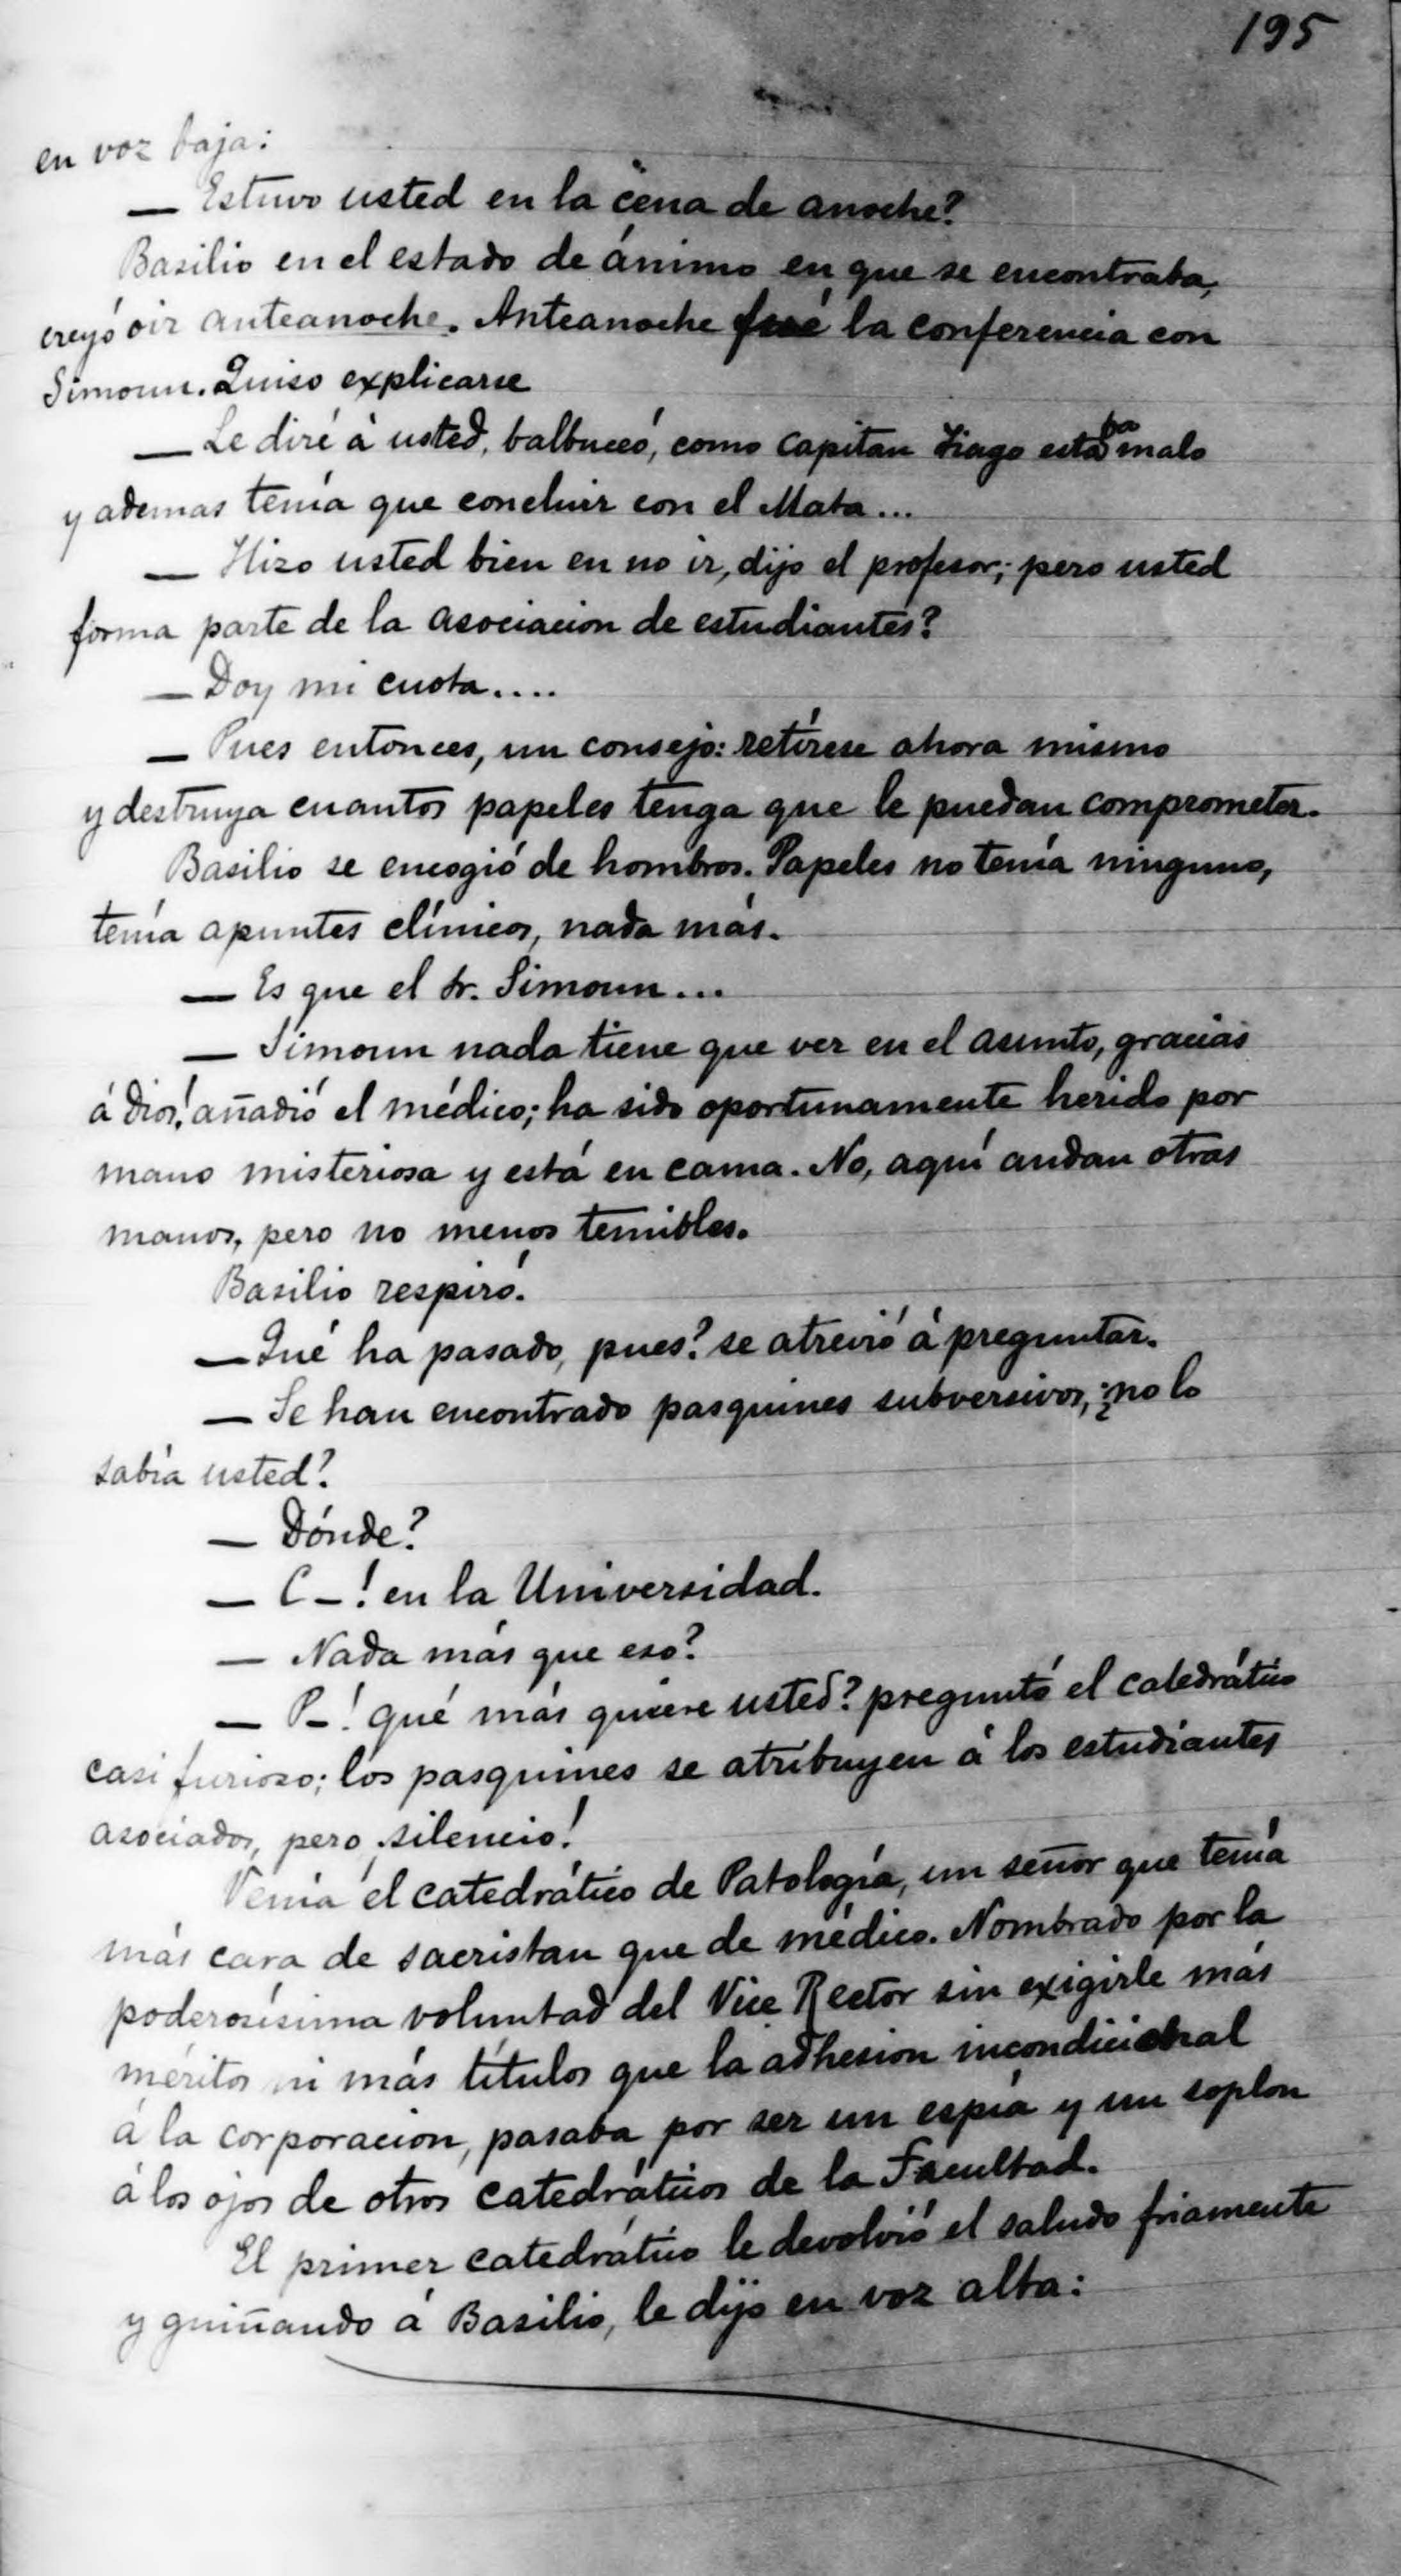 195
en voz baja:
— Estuvo usted en la cena de anoche?
Basilio en el estado de ánimo en que se encontraba,
creyó oir anteanoche. Anteanoche fué la conferencia con
Simoun. Quiso explicarse
— Le diré á usted, balbuceó, como capitan Tiago estaba malo
y ademas tenía que concluir con el Mata...
— Hizo usted bien en no ir, dijo el profesor; pero usted
forma parte de la asociacion de estudiantes?
— Doy mi cuota....
— Pues entonces, un consejo: retírese ahora mismo
y destruya cuantos papeles tenga que le puedan comprometer.
Basilio se encogió de hombros. Papeles no tenía ninguno,
tenía apuntes clínicos, nada más.
— Es que el Sr. Simoun...
— Simoun nada tiene que ver en el asunto, gracias
á Dios! añadió el médico; ha sido oportunamente herido por
mano misteriosa y está en cama. No, aquí andan otras
manos, pero no menos temibles.
Basilio respiró.
— Qué ha pasado, pues? se atrevió á preguntar.
— Se han encontrado pasquines subversivos, ¿no lo
sabía usted?
— Dónde?
— C—! en la Universidad.
— Nada más que eso?
— P—! qué más quiere usted? preguntó el catedrático
casi furioso; los pasquines se atribuyen á los estudiantes
asociados, pero silencio!
Venía el catedrático de Patología, un señor que tenía
más cara de sacristan que de médico. Nombrado por la
poderosísima voluntad del Vice Rector sin exigirle más
méritos ni más títulos que la adhesion incondicional
á la corporacion, pasaba por ser un espía y un soplon
á los ojos de otros catedráticos de la Facultad.
El primer catedrático le devolvió el saludo friamente
y guiñando á Basilio, le dijo en voz alta: